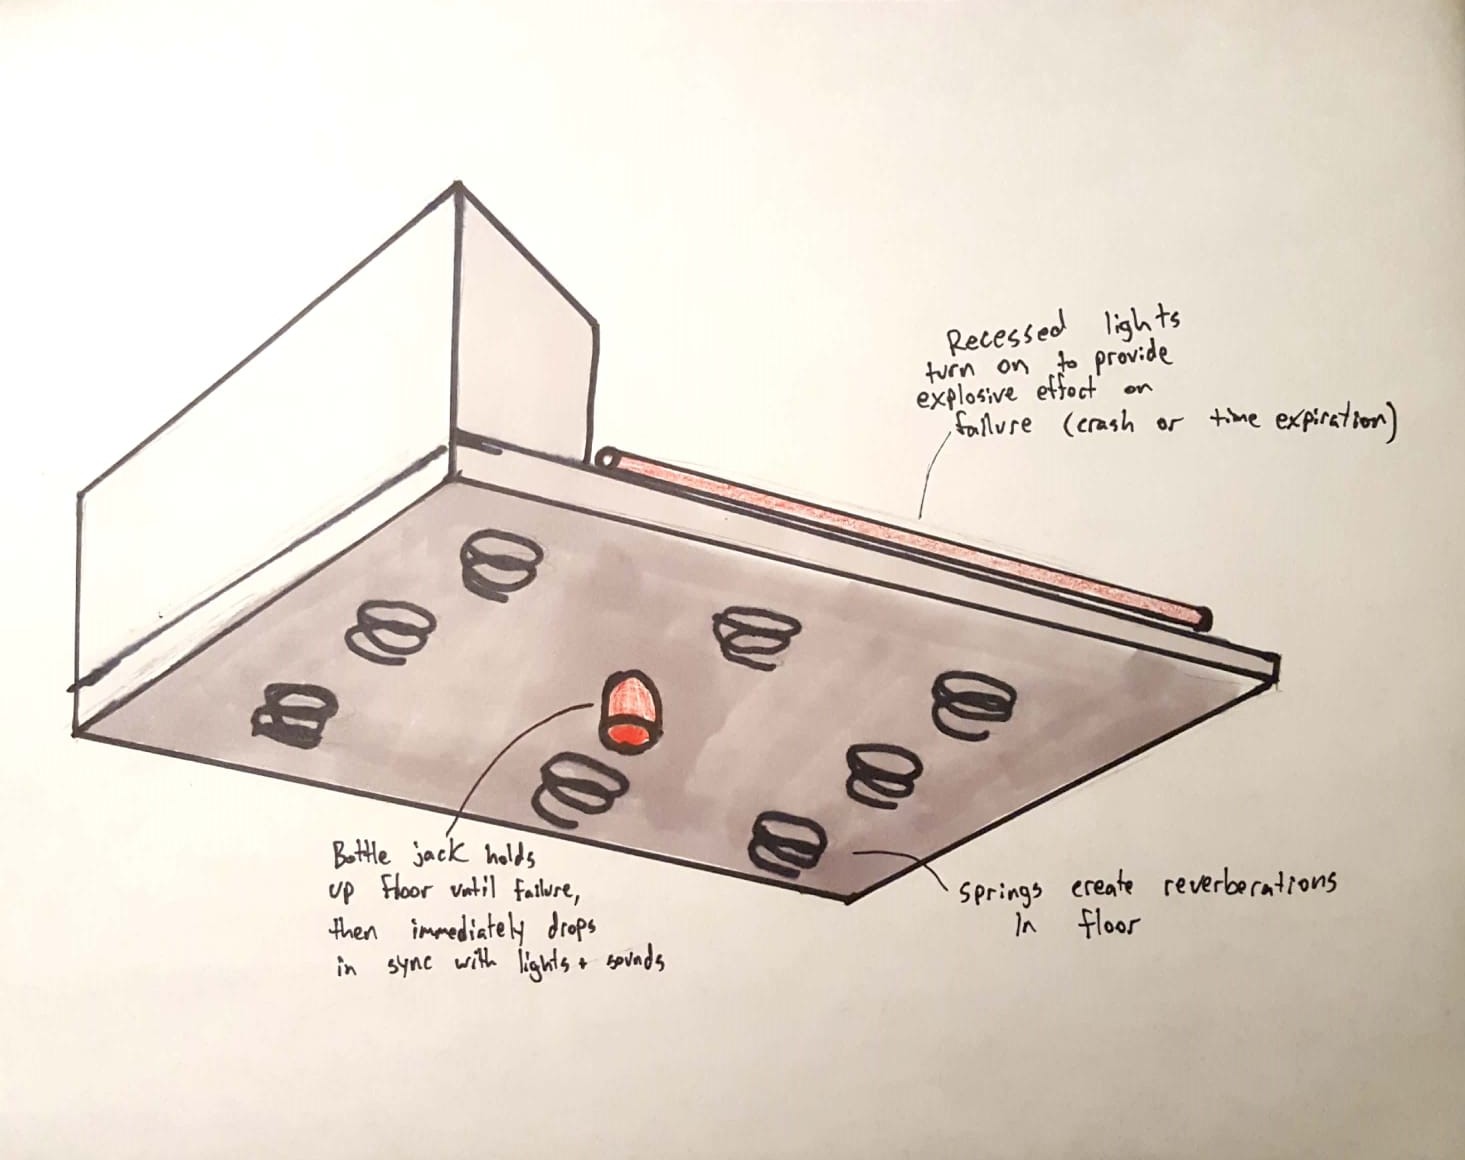 Recessed lights
turn on to provide
explosive effect on
failure (crash or time expiration)
Bottle jack holds
up floor until failure,
then immediately drops
in sync with lights + sounds
springs create reverberations
in floor